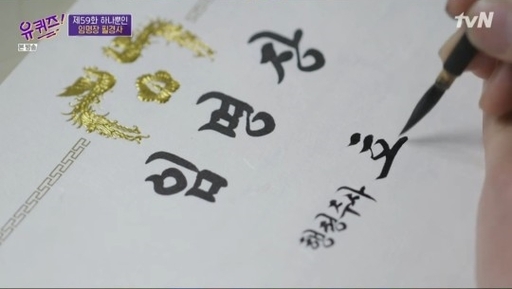 유퀴즈!
제59화 하나뿐인
임명장 필경사
tvN
임명장
행정주사 호